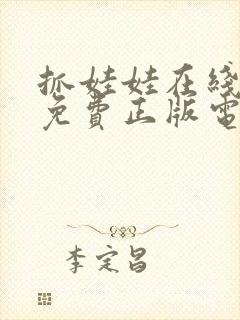 抓娃娃在綫
免費正版電
李定昌